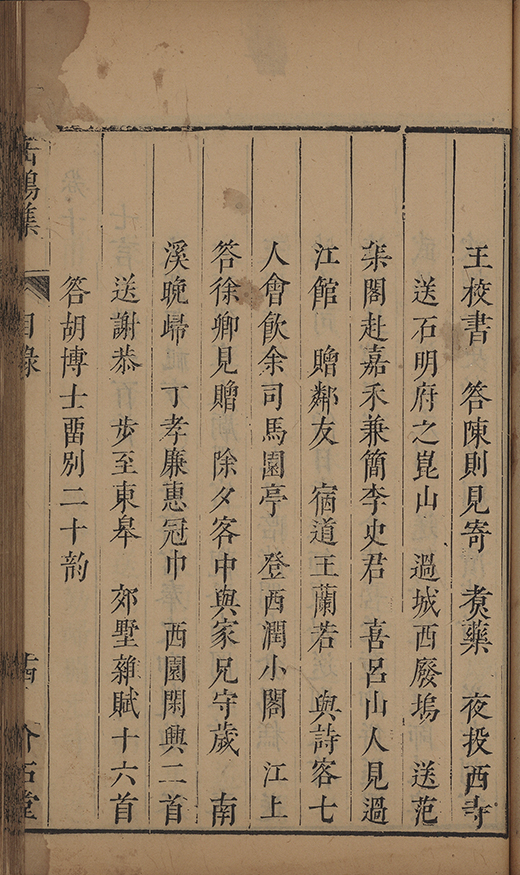 王校書　答陳則見寄　煑藥　夜投西寺
送石明府之崑山　過城西廢塢　送范
架閣赴嘉禾兼簡李史君　喜呂山人見過
江館　贈鄰友　宿道王蘭若　與詩客七
人會飲余司馬園亭　登西澗小閣　江上
答徐卿見贈　除夕客中與家兄守歲　南
溪晚歸　丁孝廉惠冠巾　西園閑興二首
送謝恭　步至東皋　郊墅雜賦十六首
答胡博士畱別二十韵
鳴集
目錄
介石堂